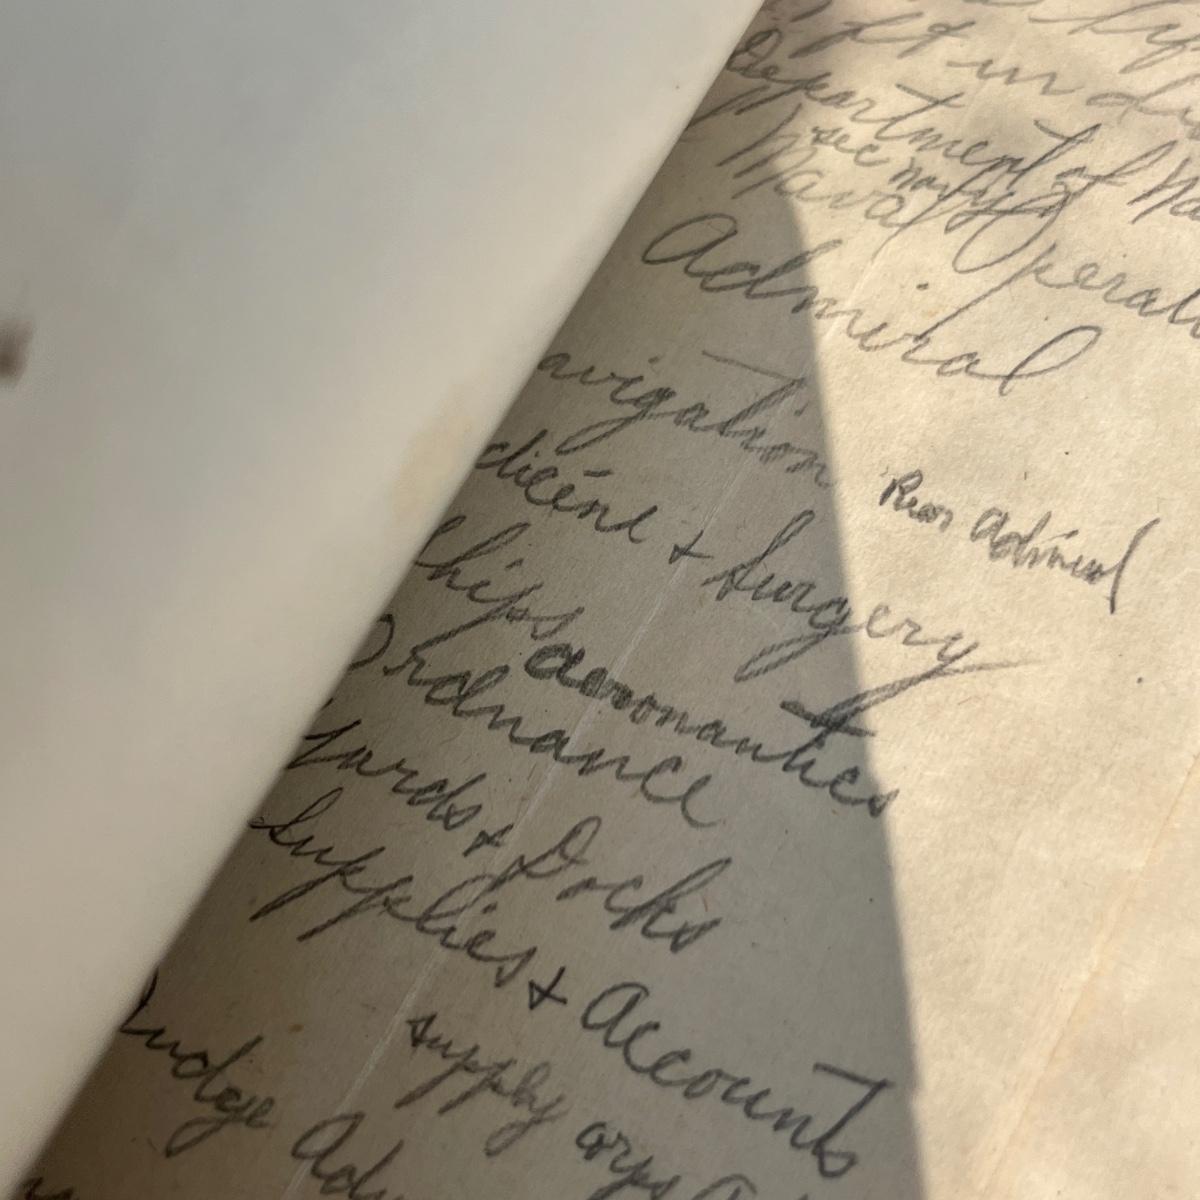 in
Department of
sec navy
Naval Operat
Admiral
avigation
Rear Admiral
dicine + Surgery
hips
aeronautics
Ordnance
Yards + Docks
Supplies + Accounts
supply corps
Judge Adv